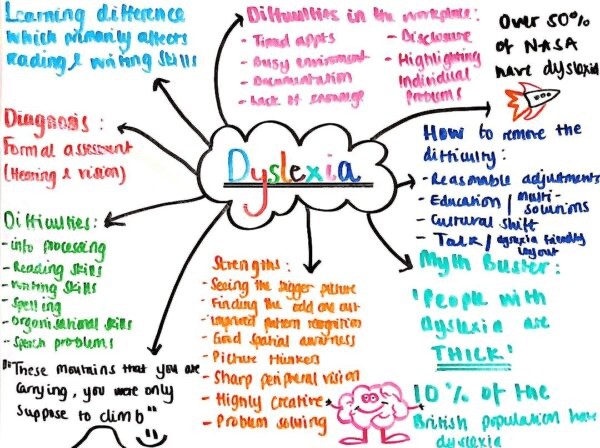 Learning difference
which primarily affects
Reading & writing skills
Difficulties in the workplace:
- Timed appts
- Busy environment
- Documentation
- Lack of
- Disclosure
- Highlighting
Individual
Problems
Over 50%
of NASA
have dyslexia
Diagnosis:
Formal assesment
(Hearing & vision)
Dyslexia
How to remove the
difficulty:
- Reasonable adjustments
- Education / multi-
solutions
- Cultural shift
- Talk / dyslexia friendly
layout
Difficulties:
- info processing
- Reading skills
- Writing skills
- Spelling
- Organisational skills
- Speech problems
Strengths:
- Seeing the bigger picture
- Finding the odd one out
- improved pattern recognition
- Good spatial awareness
- Picture thinkers
- Sharp peripheral vision
- Highly creative
- Problem solving
Myth Buster:
'People with
dyslexia are
THICK'
10% of the
British population have
dyslexia
"These mountains that you are
carrying, you were only
suppose to climb"